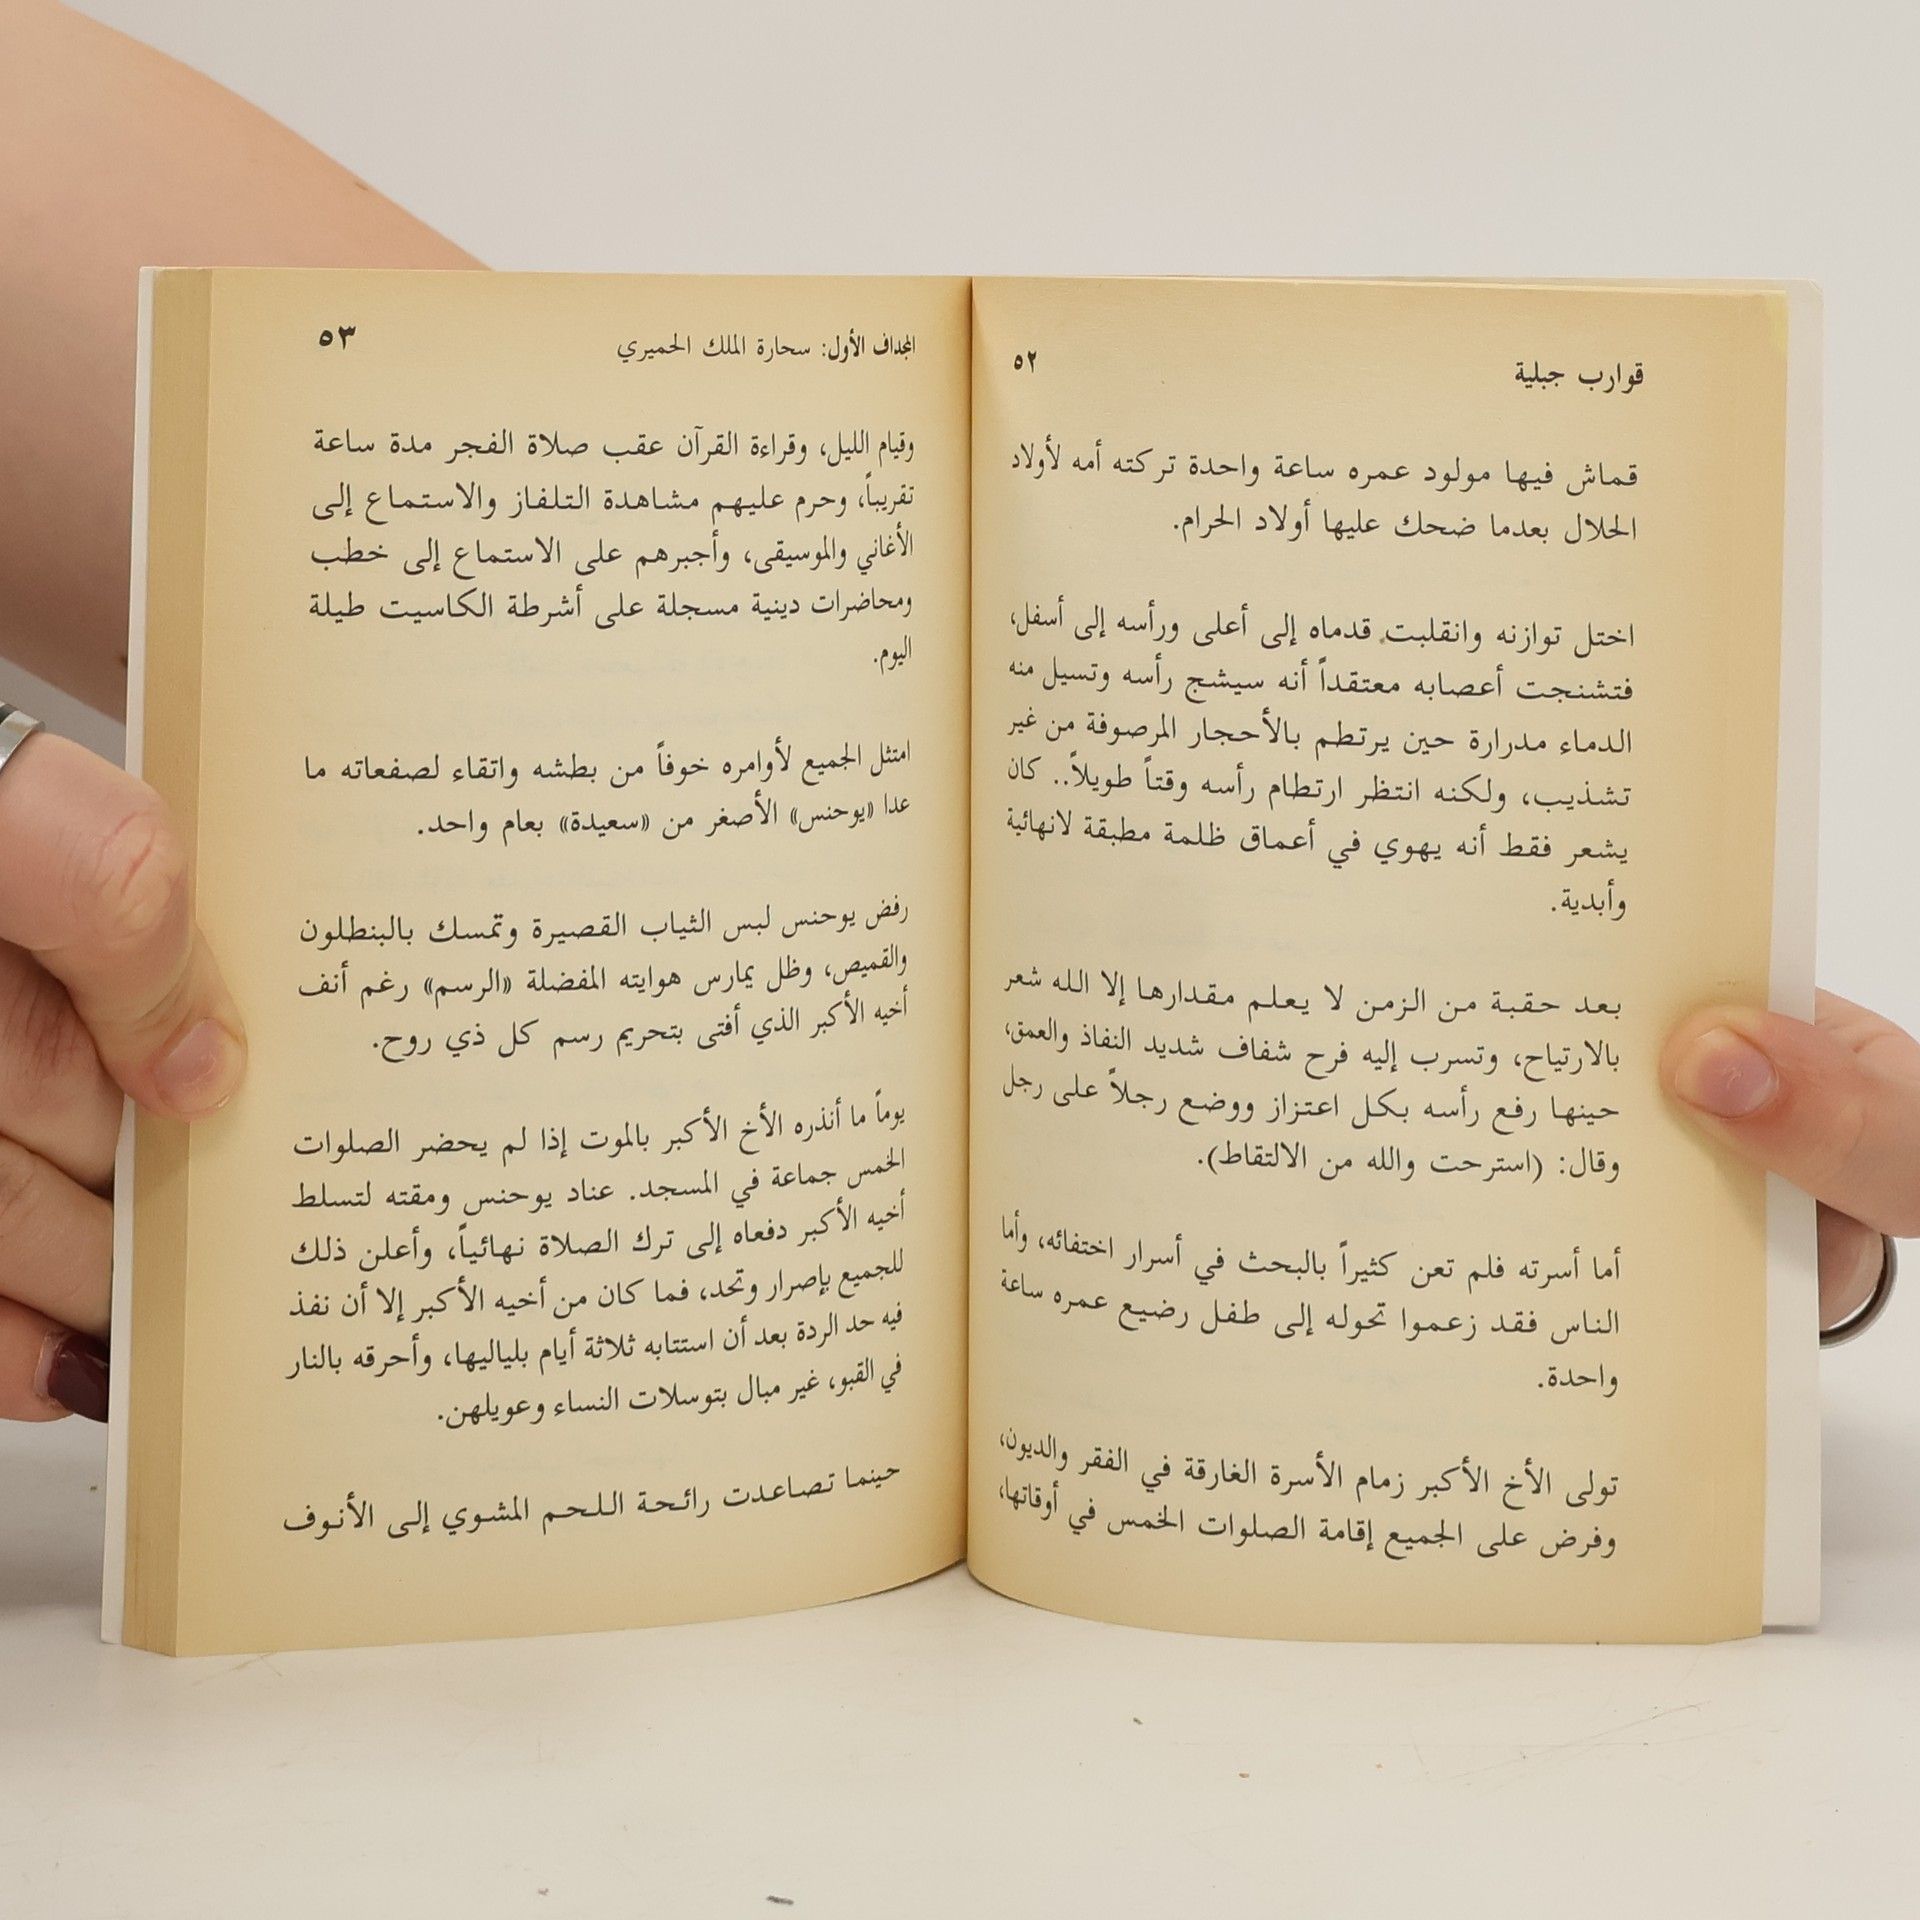 قوارب جبلية
٥٢
قماش فيها مولود عمره ساعة واحدة تركته أمه لأولاد
الحلال بعدما ضحك عليها أولاد الحرام.
اختل توازنه وانقلبت قدماه إلى أعلى ورأسه إلى أسفل،
فتشنجت أعصابه معتقداً أنه سيشج رأسه وتسيل منه
الدماء مدرارة حين يرتطم بالأحجار المرصوفة من غير
تشذيب، ولكنه انتظر ارتطام رأسه وقتاً طويلاً.. كان
يشعر فقط أنه يهوي في أعماق ظلمة مطبقة لانهائية
وأبدية.
بعد حقبة من الزمن لا يعلم مقدارها إلا الله شعر
بالارتياح، وتسرب إليه فرح شفاف شديد النفاذ والعمق،
حينها رفع رأسه بكل اعتزاز ووضع رجلاً على رجل
وقال: (استرحت والله من الالتقاط).
أما أسرته فلم تعن كثيراً بالبحث في أسرار اختفائه، وأما
الناس فقد زعموا تحوله إلى طفل رضيع عمره ساعة
واحدة.
تولى الأخ الأكبر زمام الأسرة الغارقة في الفقر والديون،
وفرض على الجميع إقامة الصلوات الخمس في أوقاتها،
المجداف الأول: سحارة الملك الحميري
٥٣
وقيام الليل، وقراءة القرآن عقب صلاة الفجر مدة ساعة
تقريباً، وحرم عليهم مشاهدة التلفاز والاستماع إلى
الأغاني والموسيقى، وأجبرهم على الاستماع إلى خطب
ومحاضرات دينية مسجلة على أشرطة الكاسيت طيلة
اليوم.
امتثل الجميع لأوامره خوفاً من بطشه واتقاء لصفعاته ما
عدا «يوحنس» الأصغر من «سعيدة» بعام واحد.
رفض يوحنس لبس الثياب القصيرة وتمسك بالبنطلون
والقميص، وظل يمارس هوايته المفضلة «الرسم» رغم أنف
أخيه الأكبر الذي أفتى بتحريم رسم كل ذي روح.
يوماً ما أنذره الأخ الأكبر بالموت إذا لم يحضر الصلوات
الخمس جماعة في المسجد. عناد يوحنس ومقته لتسلط
أخيه الأكبر دفعاه إلى ترك الصلاة نهائياً، وأعلن ذلك
للجميع بإصرار وتحد، فما كان من أخيه الأكبر إلا أن نفذ
فيه حد الردة بعد أن استتابه ثلاثة أيام بلياليها، وأحرقه بالنار
في القبو، غير مبال بتوسلات النساء وعويلهن.
حينما تصاعدت رائحة اللحم المشوي إلى الأنوف